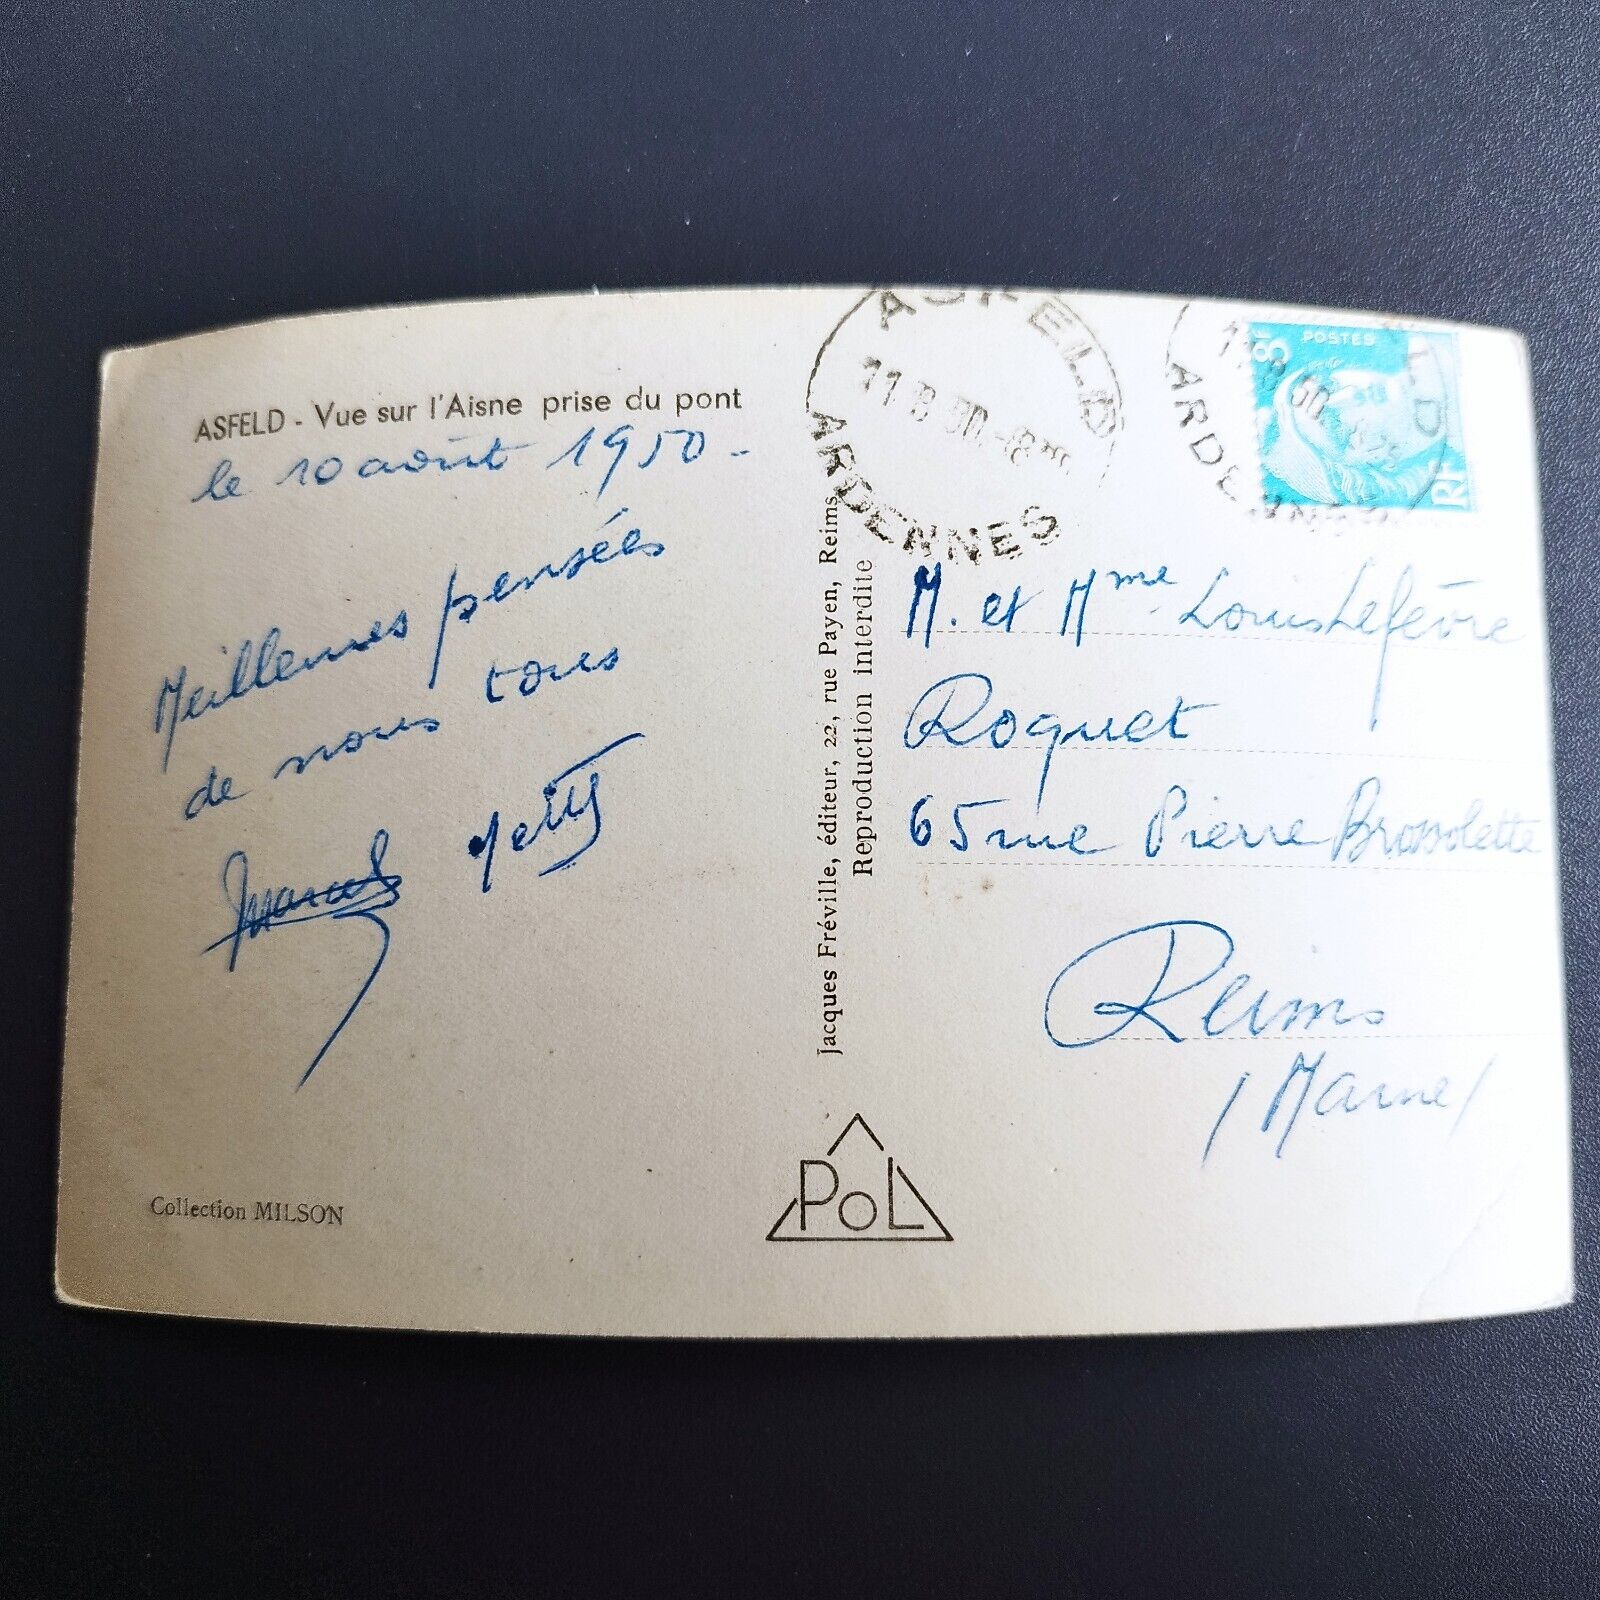 ASFELD - Vue sur l'Aisne prise du pont
le 10 août 1950 -
Meilleures pensées
de nous tous
Marcel Yetty
Collection MILSON
Jacques Fréville, éditeur, 22, rue Payen, Reims
Reproduction interdite
POL
ASFELD
ARDENNES
POSTES
8F
RF
M. et Mme Louis Lefèvre
Roquet
65 rue Pierre Brossolette
Reims
/Marne/